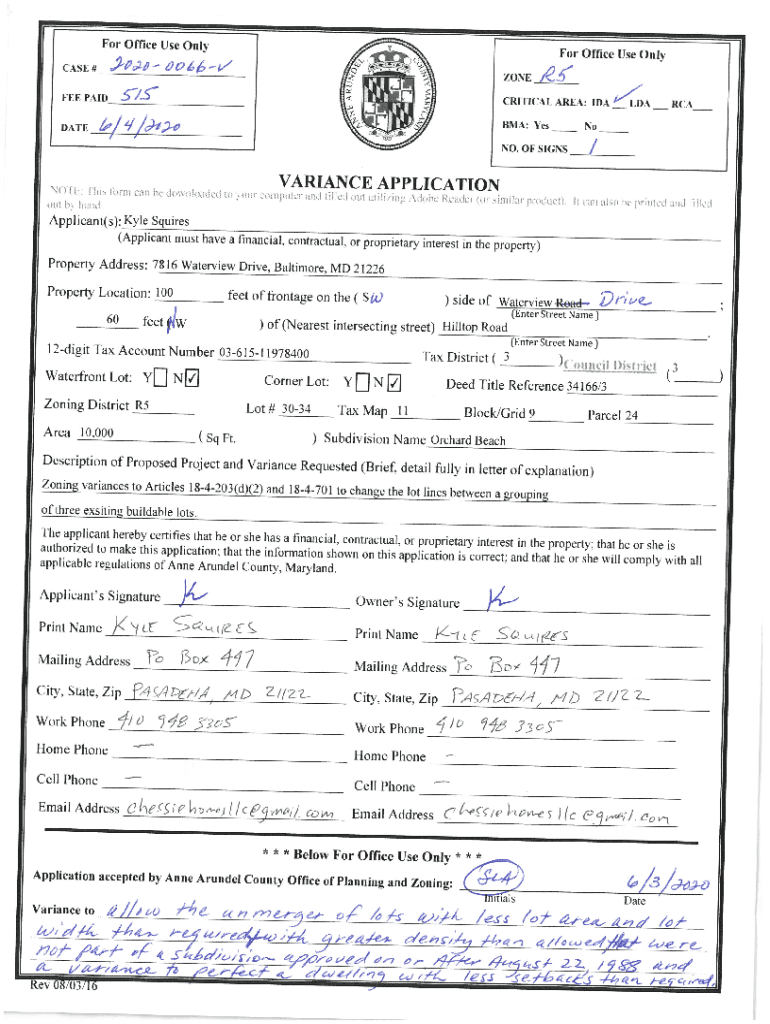 For Office Use Only
CASE # 2020-0066-V
FEE PAID 515
DATE 6/4/2020
ANNE ARUNDEL COUNTY MARYLAND
For Office Use Only
ZONE R5
CRITICAL AREA: IDA ✓ LDA ___ RCA ___
BMA: Yes ____ No ____
NO. OF SIGNS 1
VARIANCE APPLICATION
NOTE: This form can be downloaded to your computer and filled out utilizing Adobe Reader (or similar product). It can also be printed and filled
out by hand
Applicant(s): Kyle Squires
(Applicant must have a financial, contractual, or proprietary interest in the property)
Property Address: 7816 Waterview Drive, Baltimore, MD 21226
Property Location: 100 feet of frontage on the ( SW ) side of Waterview Road Drive ;
(Enter Street Name )
60 feet NW ) of (Nearest intersecting street) Hilltop Road .
(Enter Street Name )
12-digit Tax Account Number 03-615-11978400 Tax District ( 3 ) Council District ( 3 )
Waterfront Lot: Y ☐ N ☑ Corner Lot: Y ☐ N ☑ Deed Title Reference 34166/3
Zoning District R5 Lot # 30-34 Tax Map 11 Block/Grid 9 Parcel 24
Area 10,000 ( Sq Ft. ) Subdivision Name Orchard Beach
Description of Proposed Project and Variance Requested (Brief, detail fully in letter of explanation)
Zoning variances to Articles 18-4-203(d)(2) and 18-4-701 to change the lot lines between a grouping
of three exsiting buildable lots.
The applicant hereby certifies that he or she has a financial, contractual, or proprietary interest in the property; that he or she is
authorized to make this application; that the information shown on this application is correct; and that he or she will comply with all
applicable regulations of Anne Arundel County, Maryland.
Applicant's Signature K Owner's Signature K
Print Name KYLE SQUIRES Print Name KYLE SQUIRES
Mailing Address PO BOX 447 Mailing Address PO BOX 447
City, State, Zip PASADENA, MD 21122 City, State, Zip PASADENA, MD 21122
Work Phone 410 948 3305 Work Phone 410 948 3305
Home Phone — Home Phone -
Cell Phone — Cell Phone —
Email Address chessiehomesllc@gmail.com Email Address chessiehomesllc@gmail.com
* * * Below For Office Use Only * * *
Application accepted by Anne Arundel County Office of Planning and Zoning: SLA 6/3/2020
Initials Date
Variance to allow the unmerger of lots with less lot area and lot
width than required, with greater density than allowed that were
not part of a subdivision approved on or After August 22, 1988 and
a variance to perfect a dwelling with less setbacks than required.
Rev 08/03/16